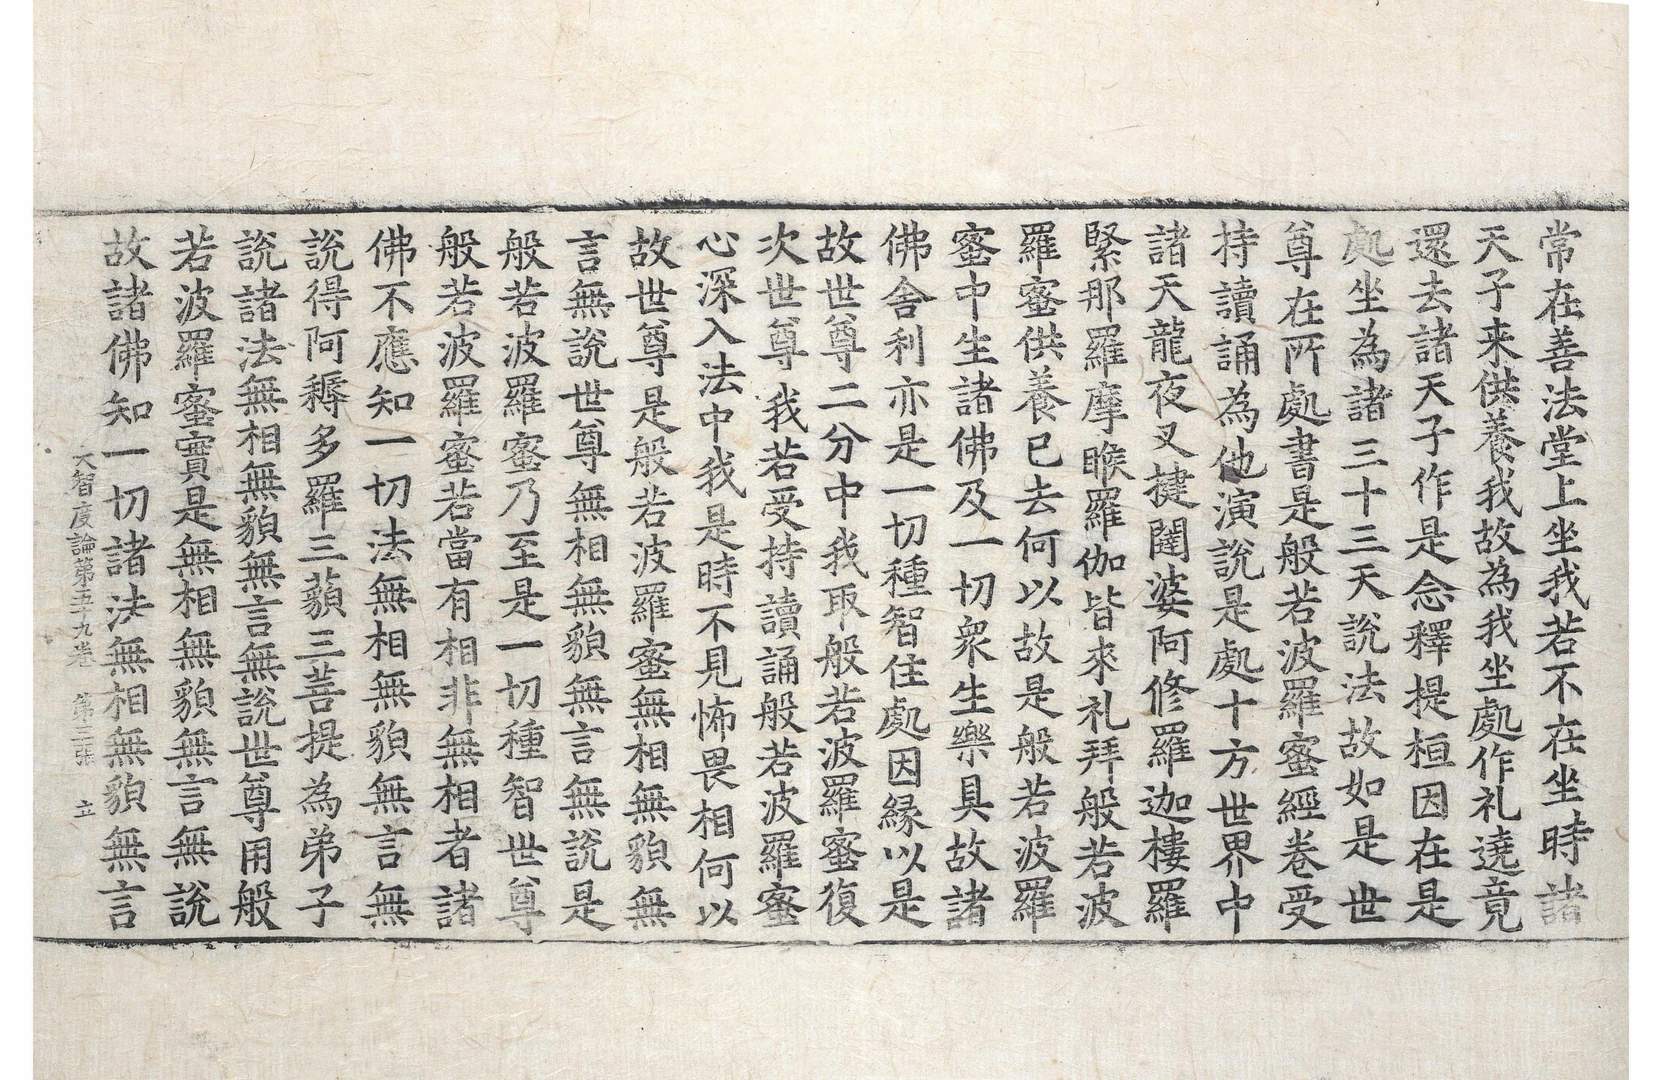 常在善法堂上坐我若不在坐時諸
天子来供養我故為我坐處作礼遶竟
還去諸天子作是念釋提桓因在是
處坐為諸三十三天說法故如是世
尊在所處書是般若波羅蜜經卷受
持讀誦為他演說是處十方世界中
諸天龍夜叉揵闥婆阿修羅迦樓羅
緊那羅摩睺羅伽皆來礼拜般若波
羅蜜供養已去何以故是般若波羅
蜜中生諸佛及一切衆生樂具故諸
佛舍利亦是一切種智住處因縁以是
故世尊二分中我取般若波羅蜜復
次世尊我若受持讀誦般若波羅蜜
心深入法中我是時不見怖畏相何以
故世尊是般若波羅蜜無相無貌無
言無說世尊無相無貌無言無說是
般若波羅蜜乃至是一切種智世尊
般若波羅蜜若當有相非無相者諸
佛不應知一切法無相無貌無言無
說得阿耨多羅三藐三菩提為弟子
說諸法無相無貌無言無說世尊用般
若波羅蜜實是無相無貌無言無說
故諸佛知一切諸法無相無貌無言
大智度論第五十九卷 第三張 立